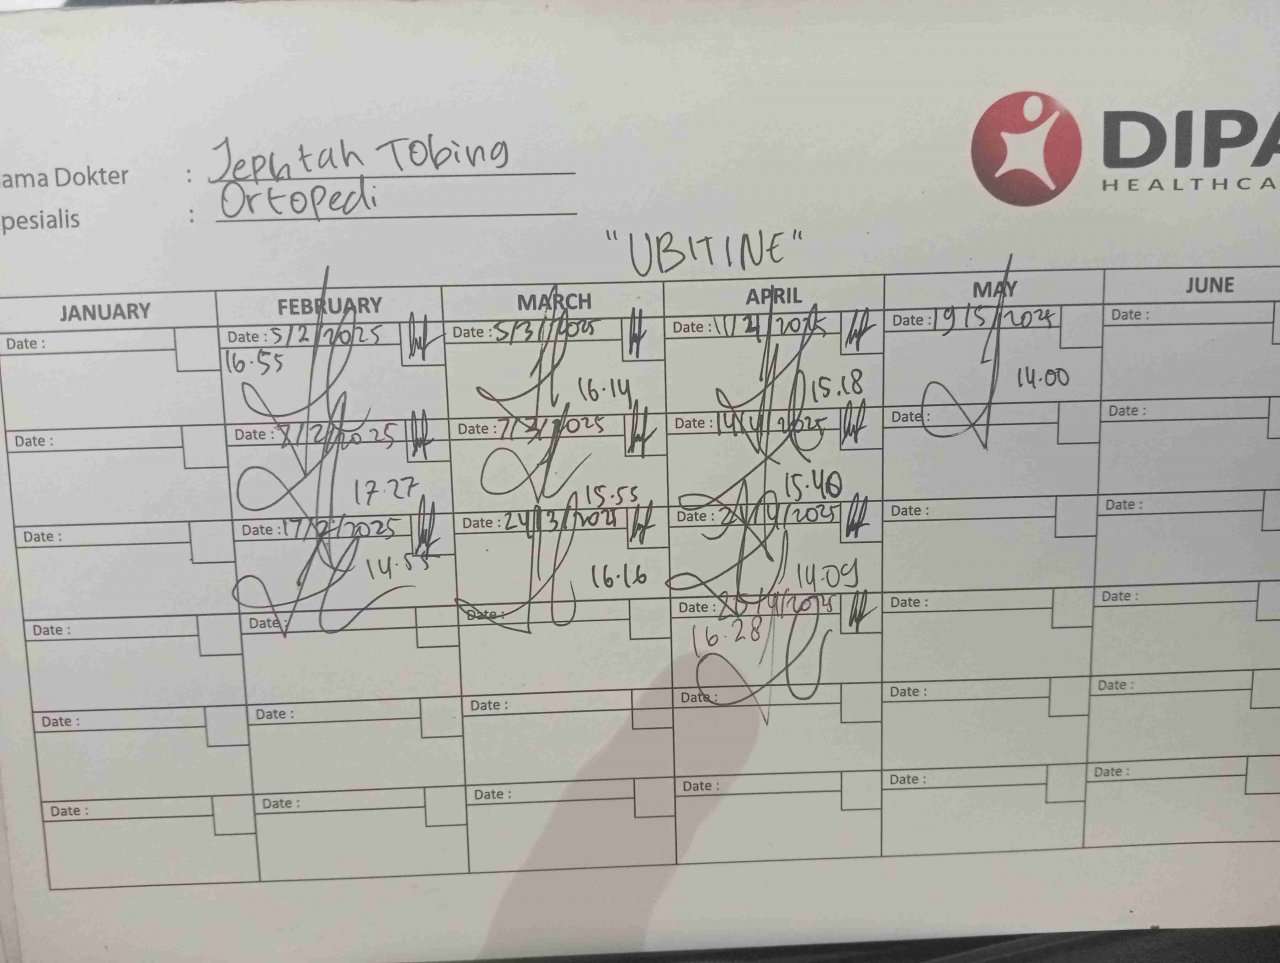 DIPA
HEALTHCA
ama Dokter : Jephtah Tobing
pesialis : Ortopedi
"UBITINE"
JANUARY FEBRUARY MARCH APRIL MAY JUNE
Date : Date : 5/2/2025 Date : 5/3/2025 Date : Date : 19/5/2025 Date :
16.55 16.14 15.18 14.00
Date : Date : 7/2/2025 Date : 7/3/2025 Date : 14/4/2025 Date : Date :
17.27 15.55 15.40
Date : Date : 17/2/2025 Date : 24/3/2025 Date : 24/4/2025 Date : Date :
14.55 16.16 14.09
Date : Date : Date : Date : 25/4/2025 Date : Date :
16.28
Date : Date : Date : Date : Date : Date :
Date : Date : Date : Date : Date : Date :